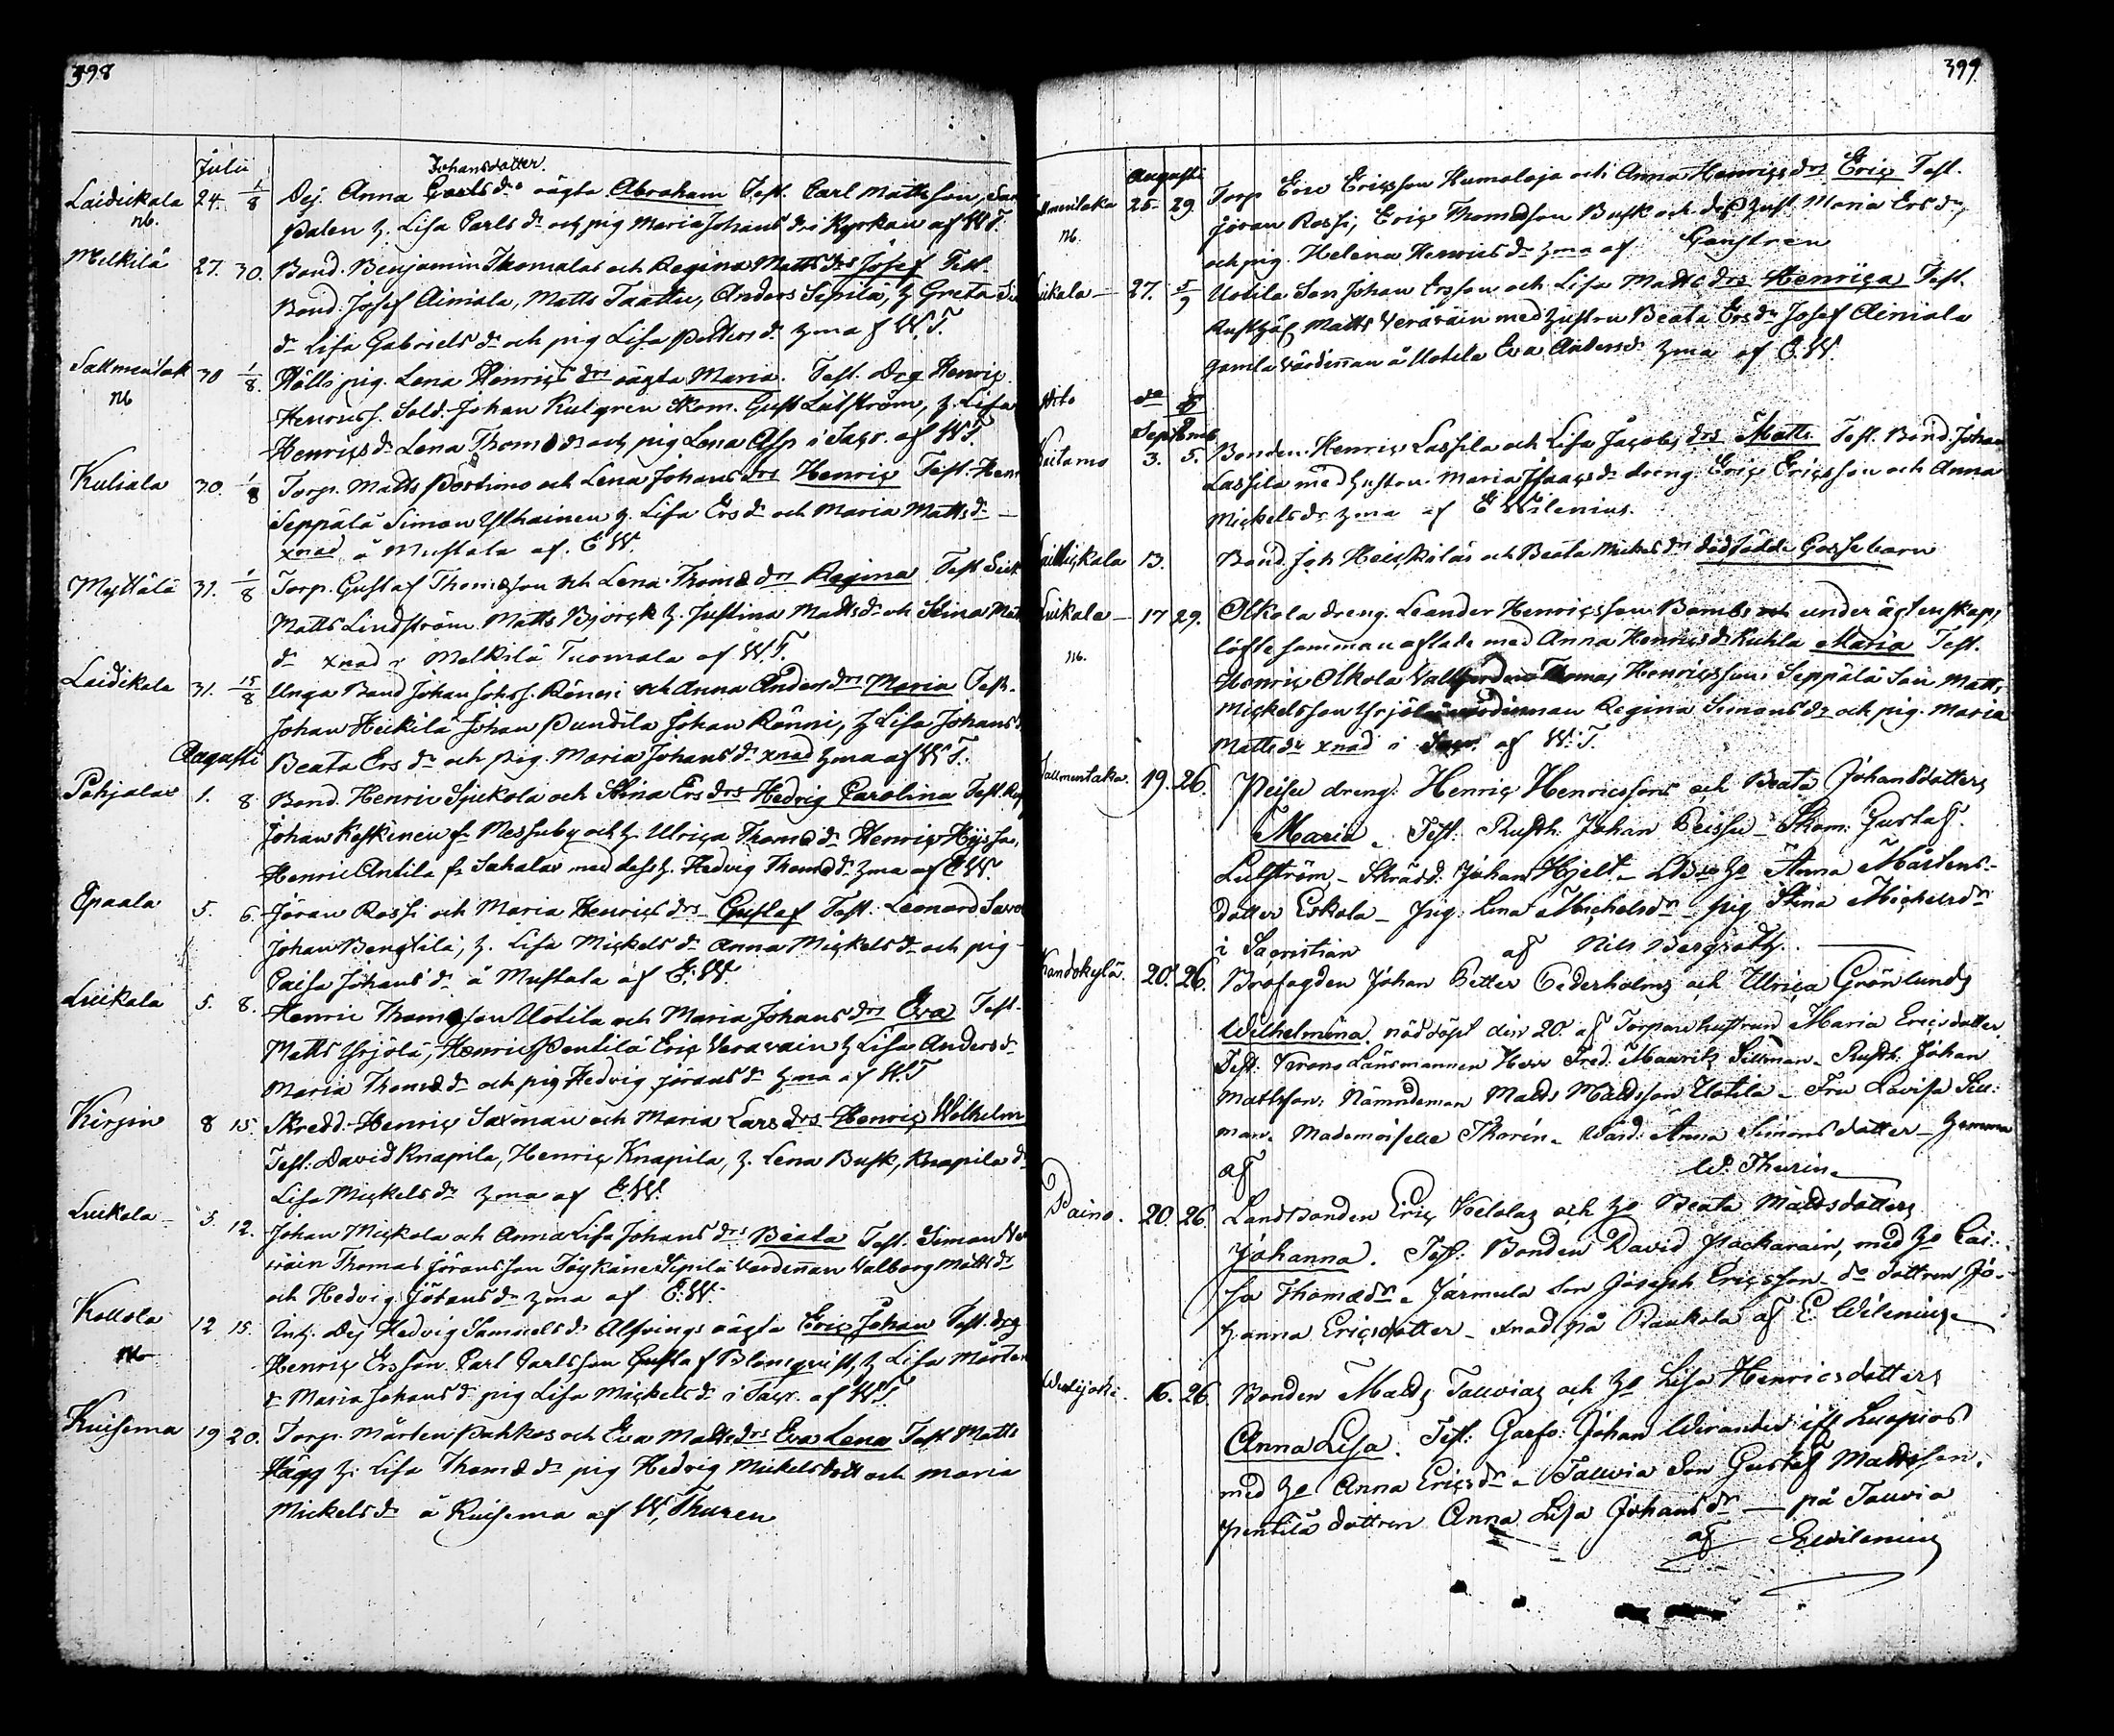 398
Julii
Johansdatter
Laidickala 24. 1/8 Dej. Anna Carlsdrs oägta Abraham Test. Carl Mattsson,
nb. Palen h. Lisa Carls dr och pig Maria Johans dr i Kyrkan af W T.
Melkilä 27. 30. Bond. Benjamin Thomalas och Regina Matts drs Josef Test.
Bond. Josef Ainiala, Matts Taattu, Anders Sepilä, h Greta
dr Lisa Gabriels dr och pig Lisa Petters dr hma af W. T.
Sallmentak 30 1/8. Hälls pig. Lena Henrics drs oägta Maria. Test. drg Henric
nb Henricss. Sold. Johan Kulgren Skom. Gust Lutström, h. Lisa
Henrics dr Lena Thomæ dr och pig Lena Asp i Sacr. af W T.
Kuliala 30. 1/8 Torp. Matts Portimo och Lena Johans drs Henric Test. Henr
Seppälä Simon Ylhainen h. Lisa Ers dr och Maria Matts dr
xnad å Mustala af. E W.
Myttälä 31. 1/8 Torp. Gustaf Thomæson och Lena Thomæ drs Regina Test
Matts Lindström Matts Björck h. Justina Matts dr och Stina Matts
dr xnad i Melkilä Tuomala af W. T.
Laidikala 31. 15/8 Unga Bond Johan Johss. Rönni och Anna Anders drs Maria Test.
Johan Heikilä Johan Pundila Johan Rönni, h Lisa Johans d
Augusti Beata Ers dr och pig. Maria Johans dr xnad hma af W T.
Pohjalax 1. 8 Bond. Henric Sjukola och Stina Ers drs Hedvig Carolina Test.
Johan Keskinen fr Messuby och h. Ulrica Thomæ dr Henric Hyssa,
Henric Antila fr Sahalax med dess h. Hedvig Thomæ dr hma af E W.
Epaala 5. 6 Jöran Rossi och Maria Henrics drs Gustaf Test. Leonard
Johan Bengtilä, h. Lisa Mickels dr Anna Mickels dr och pig
Caisa Johans dr å Mustala af E. W.
Luikala 5. 8. Henric Thomæson Uotila och Maria Johans drs Eva Test.
Matts Yrjölä, Henric Pentilä Eric Veravain h Lisa Anders dr
Maria Thomæ dr och pig Hedvig Jörans dr hma af W. T
Kirpin 8 15. Skredd. Henric Saxman och Maria Lars drs Henric Wilhelm
Test. David Knapila, Henric Knapila, h. Lena Busk, Knapila dr
Lisa Mickels dr hma af E. W.
Luikala 5. 12. Johan Mickola och Anna Lisa Johans drs Beata Test. Simon Ve
räin Thomas Jöransson Töykäne Sipilä värdinnan Walborg Matts dr
och Hedvig Jörans dr hma af E. W.
Kollola 12 15. Inh. Dej Hedvig Samuels dr Alfvings oägta Eric Johan Test. drg
Henric Ersson Carl Carlsson Gustaf Blomqvist, h Lisa Mårten
dr Maria Johans dr pig Lisa Mickels dr i Sacr. af W T.
Kuisema 19 20. Torp. Mårten Pahkos och Eva Matts drs Eva Lena Test Matts
Hägg h. Lisa Thomæ dr pig Hedvig Mickels dott och Maria
Mickels dr å Kuisema af W. Thuren
399
Augusti
25 29. Torp Eric Ericsson Humaloja och Anna Henrics drs Eric Test.
nb. Jöran Rossi, Eric Thomæson Busk och dess hust. Maria Ers dr,
och pig. Helena Henrics dr hma af
27. 5/9 Uotila Son Johan Ersson och Lisa Matts drs Henrica Test.
Rusthål Matts Verävain med hustru Beata Ers dr Josef Ainiala
gamla värdinnan å Uotila Eva Anders dr hma af E. W.
September
3. 5. Bonden Henric Lassila och Lisa Jacobs drs Matts. Test. Bond. Johan
Lassila med hustru Maria Isaacs dr dreng. Eric Ericsson och Anna
Mickels dr hma af E Wilenius.
13. Bond. Joh Heickiläs och Beata Mickels drs dödfödde Gossebarn
17 29. Olkola dreng. Leander Henricsson Bombs under äktenskaps
nb. löfte samman aflade med Anna Henrics dr Kuhla Maria Test.
Henric Olkola Thomas Henricsson, Seppälä Son Matts
Mickelsson Yrjölä värdinnan Regina Simons dr och pig. Maria
Matts dr xnad i Sacr. af W. T.
Sallmentaka. 19. 26. Peisu dreng: Henric Henricssons och Beata Johansdotters
Maria. Test: Rusth: Johan Peisu - Skom: Gustaf
Lutström - Skrädd: Johan Hjelt - Dess ho Anna Mårtens-
dotter Eskola - Pig: Lena Michelsdr - pig Stina Michelsdr
i Sacristian af Nils Bergroth.
20. 26. Brofogden Johan Petter Cederholms och Ulrica Grönlunds
Wilhelmina nöddöpt den 20. af Torparehustrun Maria Ericsdotter.
Test: Krono Länsmannen Herr Fred. Mauritz Sillman - Rusth. Johan
Mattsson. Nämndeman Matts Mattsson Uotila - Fru Lovisa Sill-
man. Mademoiselle Thurén - Värd: Anna Simonsdotter - hemma
af W. Thurén
Paino. 20. 26. Landbonden Eric Kelolas och ho Beata Mattsdotters
Johanna. Test: Bonden David Packarain, med ho Cai-
sa Thomædr - Jarmula Son Joseph Ericsson - do dottren Jo-
hanna Ericsdotter - xnad på Raukola af E. Wilenius
16. 26. Bonden Matts Tauvias och ho Lisa Henricsdotters
Anna Lisa. Test: Johan Wirander ifr Luopiois
med ho Anna Ericsdr - Tauvia Son Gustaf Mattsson.
Pentilä dottren Anna Lisa Johansdr - på Tauvia
af E Wilenius